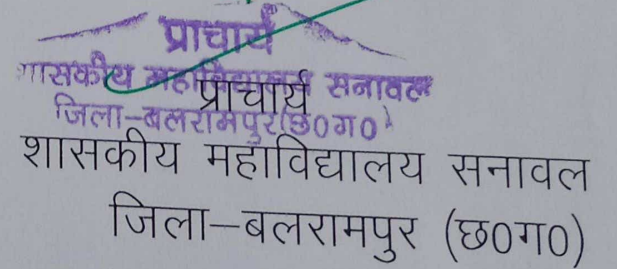 प्राचार्य
शासकीय महाविद्यालय सनावल
जिला-बलरामपुर(छ0ग0)
प्राचार्य
शासकीय महाविद्यालय सनावल
जिला-बलरामपुर (छ0ग0)